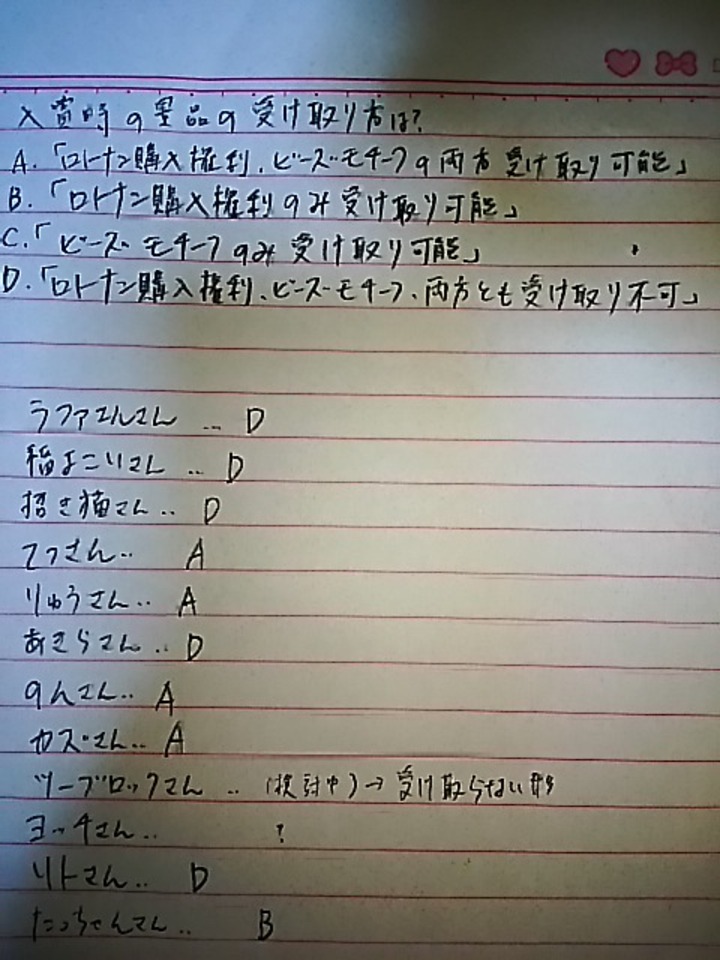 入賞時の景品の受け取り方は?
A.「ロトナン購入権利、ビーズ・モチーフの両方受け取り可能」
B.「ロトナン購入権利のみ受け取り可能」
C.「ビーズ・モチーフのみ受け取り可能」
D.「ロトナン購入権利、ビーズ・モチーフ、両方とも受け取り不可」
ラファエルさん … D
稲まこりさん .. D
招き猫さん.. D
てつさん.. A
りゅうさん.. A
あきらさん.. D
のんさん.. A
カズさん.. A
ツーブロックさん .. (検討中)→受け取らない形
ヨッチさん.. ?
リトさん.. D
たっちゃんさん.. B